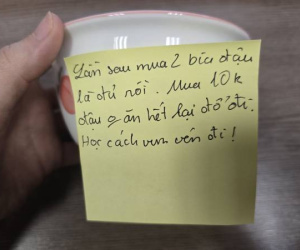 Lần sau mua 2 bìa đậu
là đủ rồi. Mua 10k
đậu ăn hết lại đổ đi.
Học cách vun vén đi!